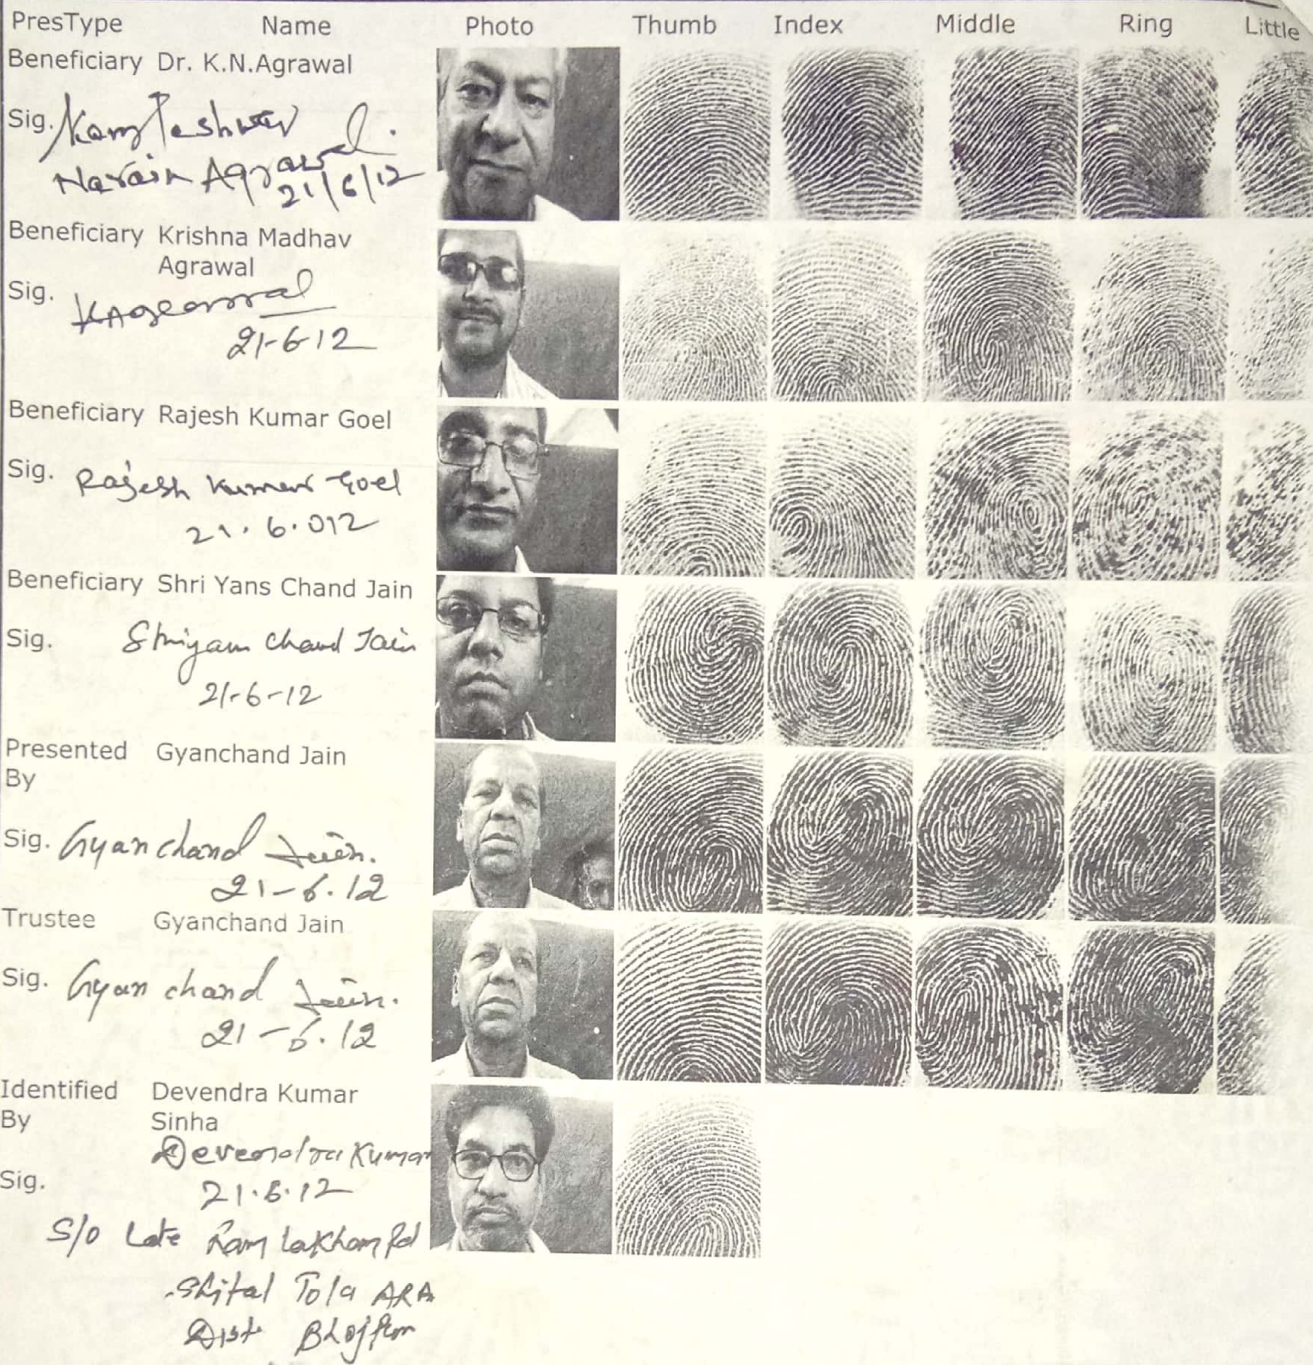 PresType Name Photo Thumb Index Middle Ring Little
Beneficiary Dr. K.N.Agrawal
Sig. Kamleshwar
Narain Agrawal
21/6/12
Beneficiary Krishna Madhav
Agrawal
Sig. KAgrawal
21-6-12
Beneficiary Rajesh Kumar Goel
Sig. Rajesh Kumar Goel
21.6.012
Beneficiary Shri Yans Chand Jain
Sig. Shriyans Chand Jain
21-6-12
Presented Gyanchand Jain
By
Sig. Gyanchand Jain.
21-6.12
Trustee Gyanchand Jain
Sig. Gyan chand Jain.
21-6.12
Identified Devendra Kumar
By Sinha
Devendra Kumar
Sig. 21.6.12
S/o Late Ram Lakhan Pd
Shital Tola ARA
Dist Bhojpur